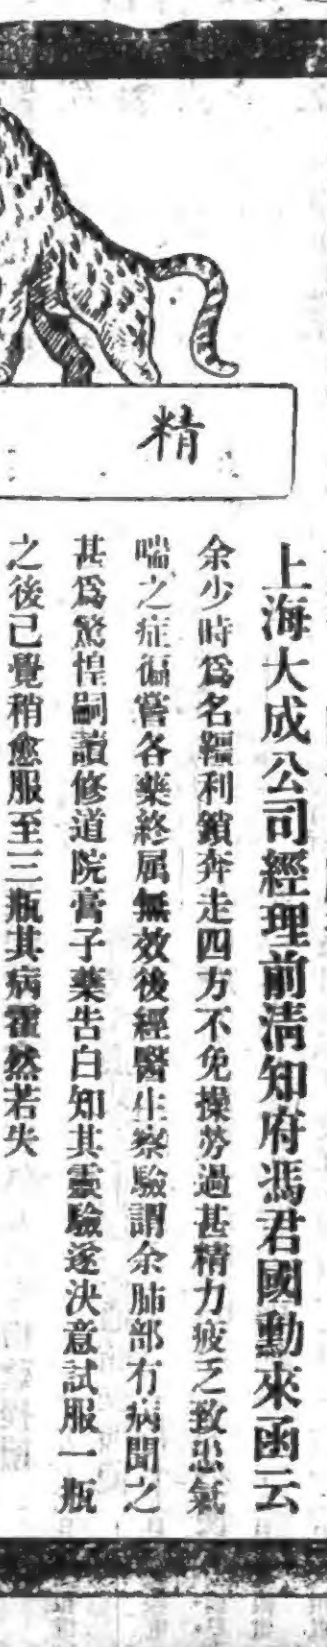 精
上海大成公司經理前淸知府馮君國勳來函云
余少時爲名韁利鎖奔走四方不免操勞過甚精力疲乏致患氣
喘之症徧嘗各藥終屬無效後經醫生察驗謂余肺部有病聞之
甚爲驚惶嗣讀修道院膏子藥告白知其靈驗遂決意試服一瓶
之後已覺稍愈服至三瓶其病霍然若失